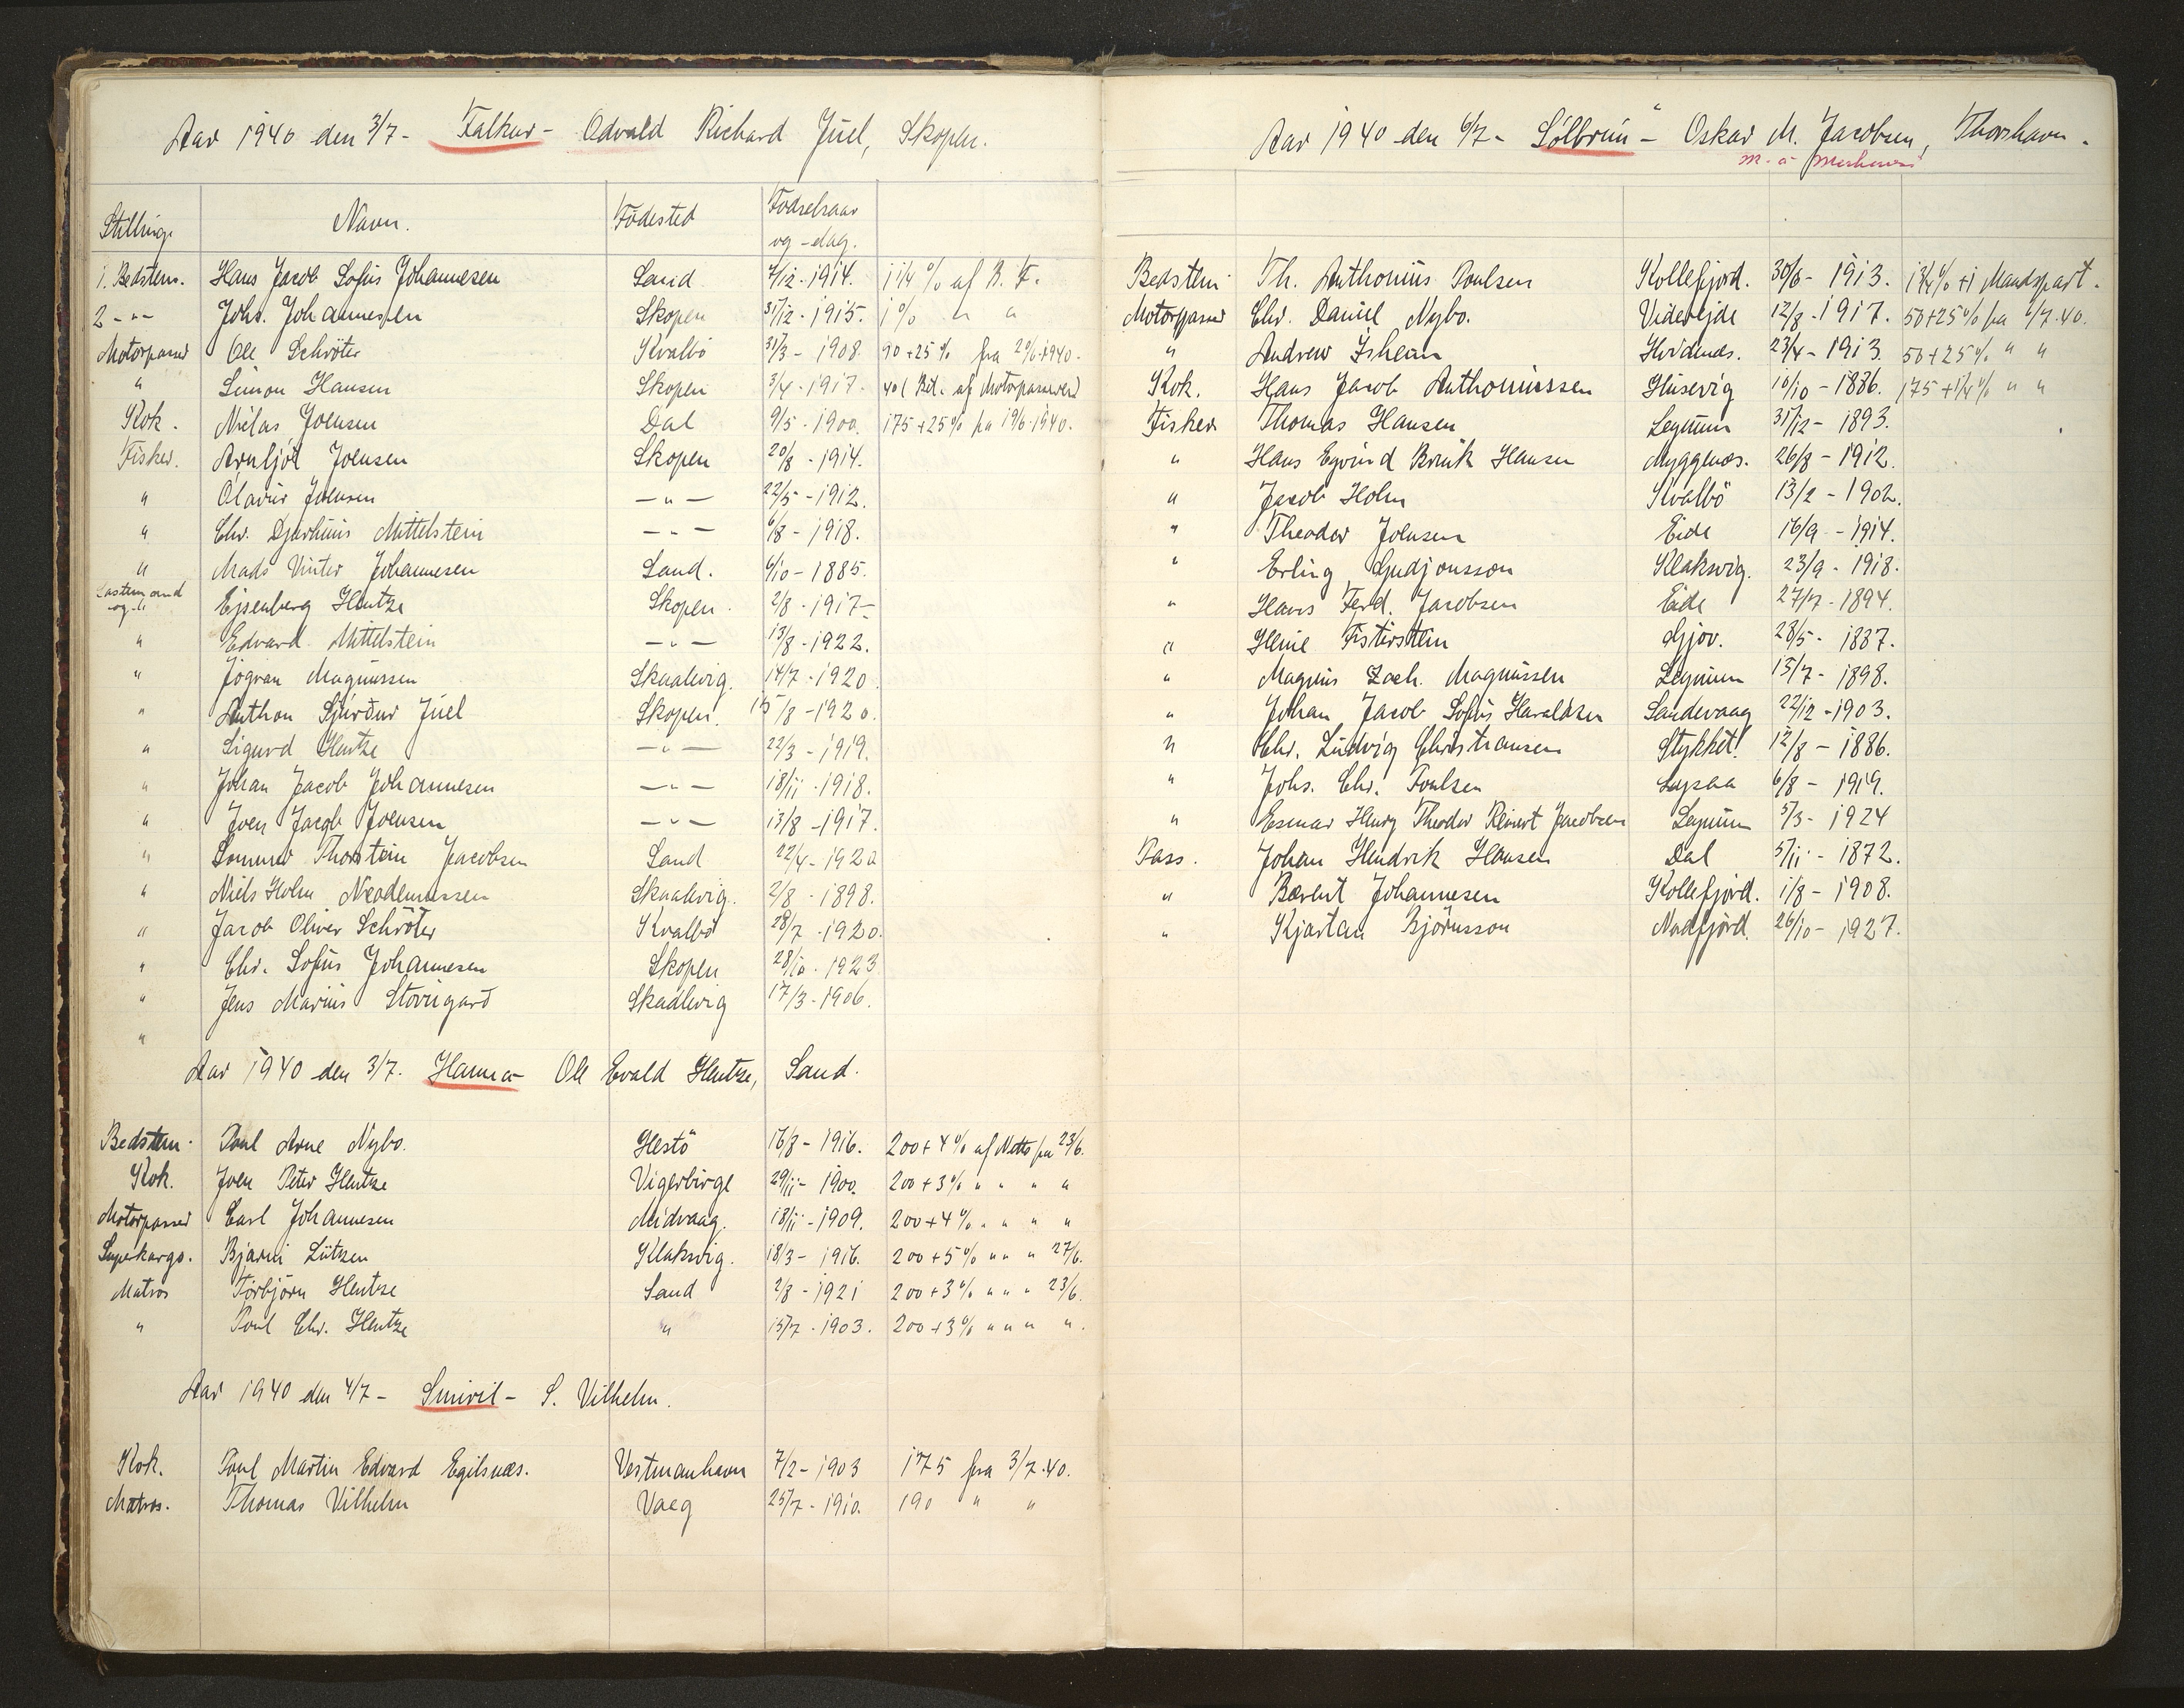 Aar 1940 den 3/7 - Falkur - Odvald Richard Juel, Skopen.
Stilling Navn. Födested Födselsaar og -dag.
1. Bedstem. Hans Jacob Sofus Johannesen Sand 7/12-1914. 1 1/4 % af B. F.
2 - " - Johs. Johannesen Skopen 31/12-1915. 1 % " "
Motorpasser Ole Schröter Kvalbö 31/3 - 1908. 90+25 % fra 20/6-1940.
" Simon Hansen Skopen 3/4-1917. af Motorpasseren
Kok. Niclas Joensen Dal 9/5-1900. 175+25% fra 19/6-1940.
Fisker. Arnljót Joensen Skopen 20/8-1914.
" Olavur Joensen - " - 22/5-1912.
" Chr. Djurhuus Mittelstein - " - 6/8-1918.
" Mads Vinter Johannesen Sand. 6/10-1885.
Lastemand og " Ejsenberg Hentze Skopen. 2/8-1917-
" Edvard Mittelstein - " - 13/8-1922.
" Jögvan Magnussen Skaalevig. 14/7-1920
" Anthon Sjúrður Juel Skopen. 15/8-1920.
" Sigurd Hentze - " - 22/3-1919.
" Johan Jacob Johannesen - " - 18/11-1918.
" Joen Jacob Joensen - " - 13/8-1917.
" Sommer Thorstein Jacobsen Sand 22/4-1920
" Niels Holm Nicodemussen Skaalevig. 2/8-1898.
" Jacob Oliver Schröter Kvalbö 28/7-1920.
" Chr. Sofus Johannesen Skopen 28/10-1923
" Jens Marius Stóragarð Skaalevig 17/3-1906.
"
Aar 1940 den 3/7. Hanna - Ole Evald Hentze, Sand.
Bedstem. Poul Arne Nybo. Hestö 16/8-1916. 200+4% af Netto fra 23/6.
Kok. Joen Peter Hentze Vigerbirge 29/11-1900. 200+3% " " " "
Motorpasser Carl Johannesen Midvaag. 18/11-1909. 200+4% " " " "
Superkargo. Bjarni Lützen Klaksvig. 18/3-1916. 200+5% " " " 27/6.
Matros Torbjörn Hentze Sand 2/8-1921 200+3% " " " 23/6.
" Poul Chr. Hentze " 15/7-1903. 200+3% " " " ".
Aar 1940 den 4/7 - Smiril - S. Vilhelm.
Kok. Poul Martin Edvard Egilsnæs. Vestmanhavn 7/2-1903 175 fra 3/7.40.
Matros. Thomas Vilhelm Vaag 25/7-1910. 190 " "
Aar 1940 den 6/7 - Sólbrún - Oskar M. Jacobsen, Thorshavn.
Bedstem Th. Anthonius Poulsen Kollefjord. 30/6-1913. 1 3/4 % +1 Mandspart.
Motorpasser Chr. Daniel Nybo. Viderejde 12/8-1917. 50+25% fra 6/7.40.
" Andrew Isheim Hvidenæs. 23/4-1913. 50+25% " "
Kok. Hans Jacob Anthoniussen Husevig 10/10-1886. 175+1/4% " "
Fisker. Thomas Hansen Leynum 31/12-1893.
" Hans Eyvind Brink Hansen Myggenæs. 26/8-1912.
" Jacob Holm Kvalbö 13/2-1902.
" Theodor Joensen Eide 16/9-1914.
" Erling Gudjonsson Klaksvig. 23/9-1918.
" Hans Ferd. Jacobsen Eide 27/7-1894.
" Henie Fisterstein Gjov. 28/5-1887.
" Magnus Zach. Magnussen Leynum 13/7-1898.
" Johan Jacob Sofus Haraldsen Sandevaag 22/12-1903.
" Chr. Ludvig Christiansen Stykket! 12/8-1886.
" Johs. Chr. Poulsen 6/8-1919.
" Esmar Henry Theodor Reinert Jacobsen Leynum 5/3-1924
Pass. Johan Hendrik Hansen Dal 5/11-1872.
" Bærent Johannesen Kollefjord. 1/8-1908.
" Kjartan Björnsson Nodfjörd. 26/10-1927.